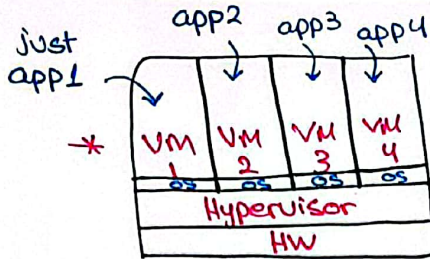 just app1
app2
app3
app4
*
VM 1
VM 2
VM 3
VM 4
OS
OS
OS
OS
Hypervisor
HW